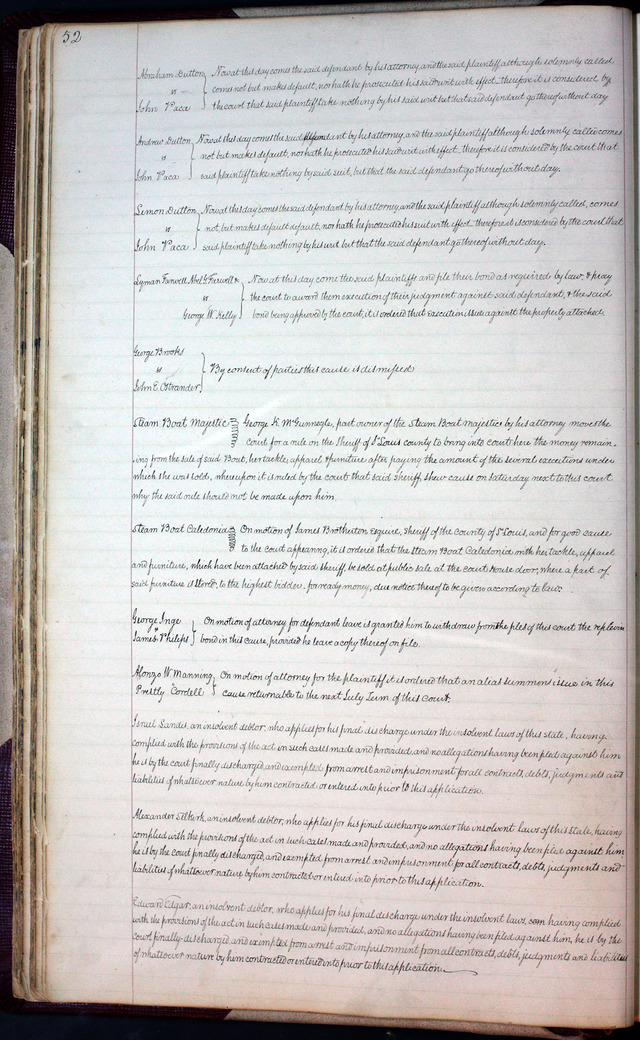 52
Abraham Dutton } Now at this day comes the said defendant by his attorney, and the said plaintiff although solemnly called
vs comes not but makes default, nor hath he prosecuted his said writ with effect, therefore it is considered by
John Vaca the court that said plaintiff take nothing by his said writ but that said defendant go thereof without day
Andrew Dutton } Now at this day comes the said defendant by his attorney, and the said plaintiff although solemnly called comes
vs not but makes default, nor hath he prosecuted his said writ with effect, therefore it is considered by the court that
John Vaca said plaintiff take nothing by said suit, but that the said defendant go thereof without day.
Lemon Dutton } Now at this day comes the said defendant by his attorney, and the said plaintiff although solemnly called, comes
vs not, but makes default default, nor hath he prosecuted his suit with effect therefore it is considered by the court that
John Vaca said plaintiff take nothing by his writ but that the said defendant go thereof without day.
Lyman Farwell Abel G. Farwell & } Now at this day come the said plaintiffs and file their bond as required by law, & pray
vs the court to award them execution of their judgment against said defendant, & the said
George W. Kelly bond being approved by the court, it is ordered that execution issue against the property attached.
George Brooks
vs } By consent of parties this cause is dismissed
John E. Ostrander
Steam Boat Majestic } George K. McGunnegle, part owner of the Steam Boat majestic by his attorney moves the
court for a rule on the Sheriff of St Louis county to bring into court here the money remain-
ing from the sale of said Boat, her tackle, apparel & furniture after paying the amount of the several executions under
which she was sold, whereupon it is ruled by the court that said sheriff, shew cause on Saturday next to this court
why the said rule should not be made upon him.
Steam Boat Caledonia } On motion of James Brotherton Esquire, Sheriff of the county of St Louis, and for good cause
to the court appearing, it is ordered that the Steam Boat Caledonia with her tackle, apparel
and furniture, which have been attached by said sheriff, be sold at public sale at the Court House door, where a part of
said furniture is stored, to the highest bidder for ready money, due notice thereof to be given according to law.
George Inge } On motion of attorney for defendant leave is granted him to withdraw from the files of this court the replevin
vs
James Philips bond in this cause, provided he leave a copy thereof on file.
Alonzo W Manning } On motion of attorney for the plaintiff it is ordered that an alias summons issue in this
Prestly Cordell cause returnable to the next July Term of this Court.
Israel Landis, an insolvent debtor, who applies for his final discharge under the insolvent laws of this state, having
complied with the provisions of the act in such cases made and provided, and no allegations having been filed against him
he is by the court finally discharged, and exempted from arrest and imprisonment for all contracts, debts, judgments and
liabilities of whatsoever nature by him contracted or entered into prior to this application.
Alexander Selkirk, an insolvent debtor, who applies for his final discharge under the insolvent laws of this State, having
complied with the provisions of the act in such cases made and provided, and no allegations having been filed against him
he is by the court finally discharged, and exempted from arrest and imprisonment for all contracts, debts, judgments and
liabilities of whatsoever nature by him contracted or entered into prior to this application.
Edward Edgar, an insolvent debtor, who applies for his final discharge under the insolvent laws, having complied
with the provisions of the act in such cases made and provided, and no allegations having been filed against him, he is by the
court finally discharged, and exempted from arrest and imprisonment from all contracts, debts, judgments and liabilities
of whatsoever nature by him contracted or entered into prior to this application.